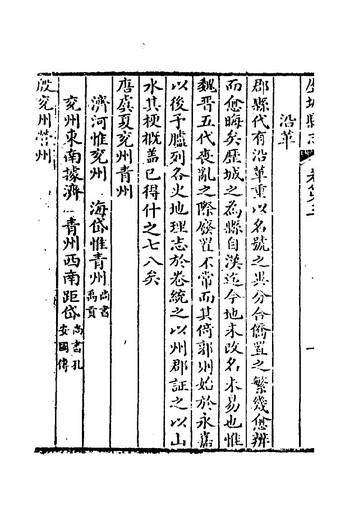 歷城縣志 卷第三 一
沿革
郡縣代有沿革重以名號之異分合僑置之繁幾愈辨
而愈晦矣歷城之為縣自漢迄今地未改名未易也惟
魏晉五代喪亂之際廢置不常而其倚郭則始於永嘉
以後予臚列各史地理志於卷統之以州郡証之以山
水其梗概蓋已得什之七八矣
唐虞夏兗州青州
濟河惟兗州 海岱惟青州 尚書禹貢
兗州東南據濟 青州西南距岱 尚書孔安國傳
殷兗州營州